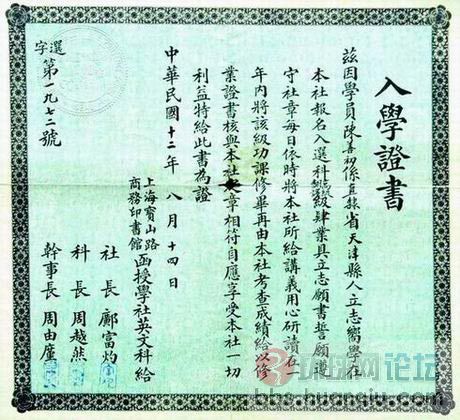 入學證書
茲因學員陳善初係直隸省天津縣人立志嚮學在
本社報名入選科級肄業具立志願書誓願遵
守社章每日依時將本社所給講義用心研讀在
年內將該級功課修畢再由本社考查成績給以修
業證書核與本社章相符自應享受本社一切
利益特給此書為證
中華民國十二年八月十四日
上海寶山路
商務印書館
函授學社英文科給
社長鄺富灼
科長周越然
幹事長周由廑
選字第一九七二號
环球网论坛
bbs.huanqiu.com